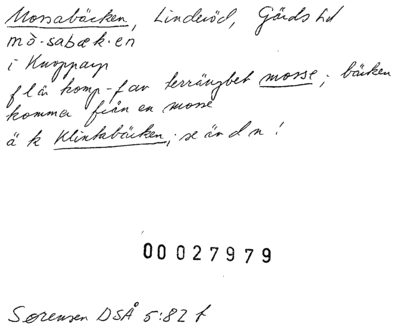 Mossabäcken, Linderöd, Gärds hd
mò·sabæk·en
i Knopparp
f l är komp-f av terrängbet mosse; bäcken
kommer från en mosse
ä k Klintabäcken, se än d n!
00027979
Sørensen DSÅ 5:82 f